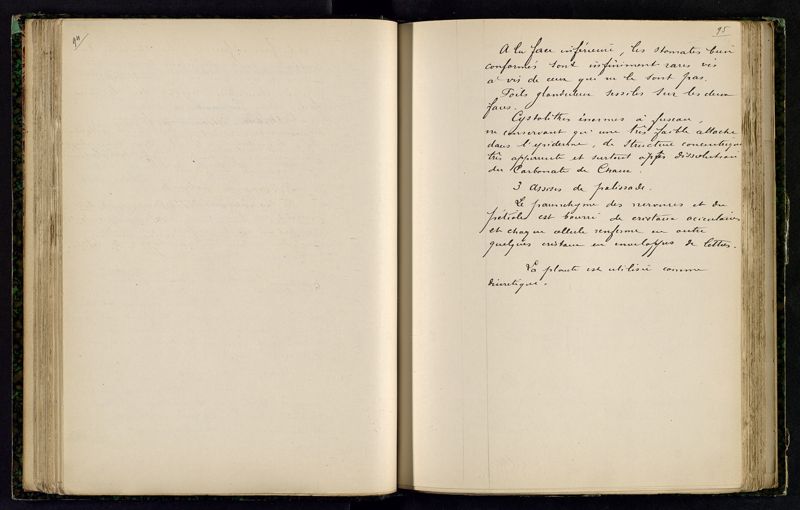 94
95
A la face inférieure, les stomates bien
conformés sont infiniment rares vis
à vis de ceux qui ne le sont pas.
Poils glanduleux sessiles sur les deux
faces.
Cystolithes énormes à fuseau,
ne conservant qu'une très faible attache
dans l'épiderme, de structure concentrique
très apparente et surtout après dissolution
du Carbonate de Chaux.
3 Assises de palissade.
Le parenchyme des nervures et du
pétiole est bourré de cristaux aciculaires
et chaque cellule renferme en outre
quelques cristaux en enveloppes de lettres.
La plante est utilisée comme
diurétique.